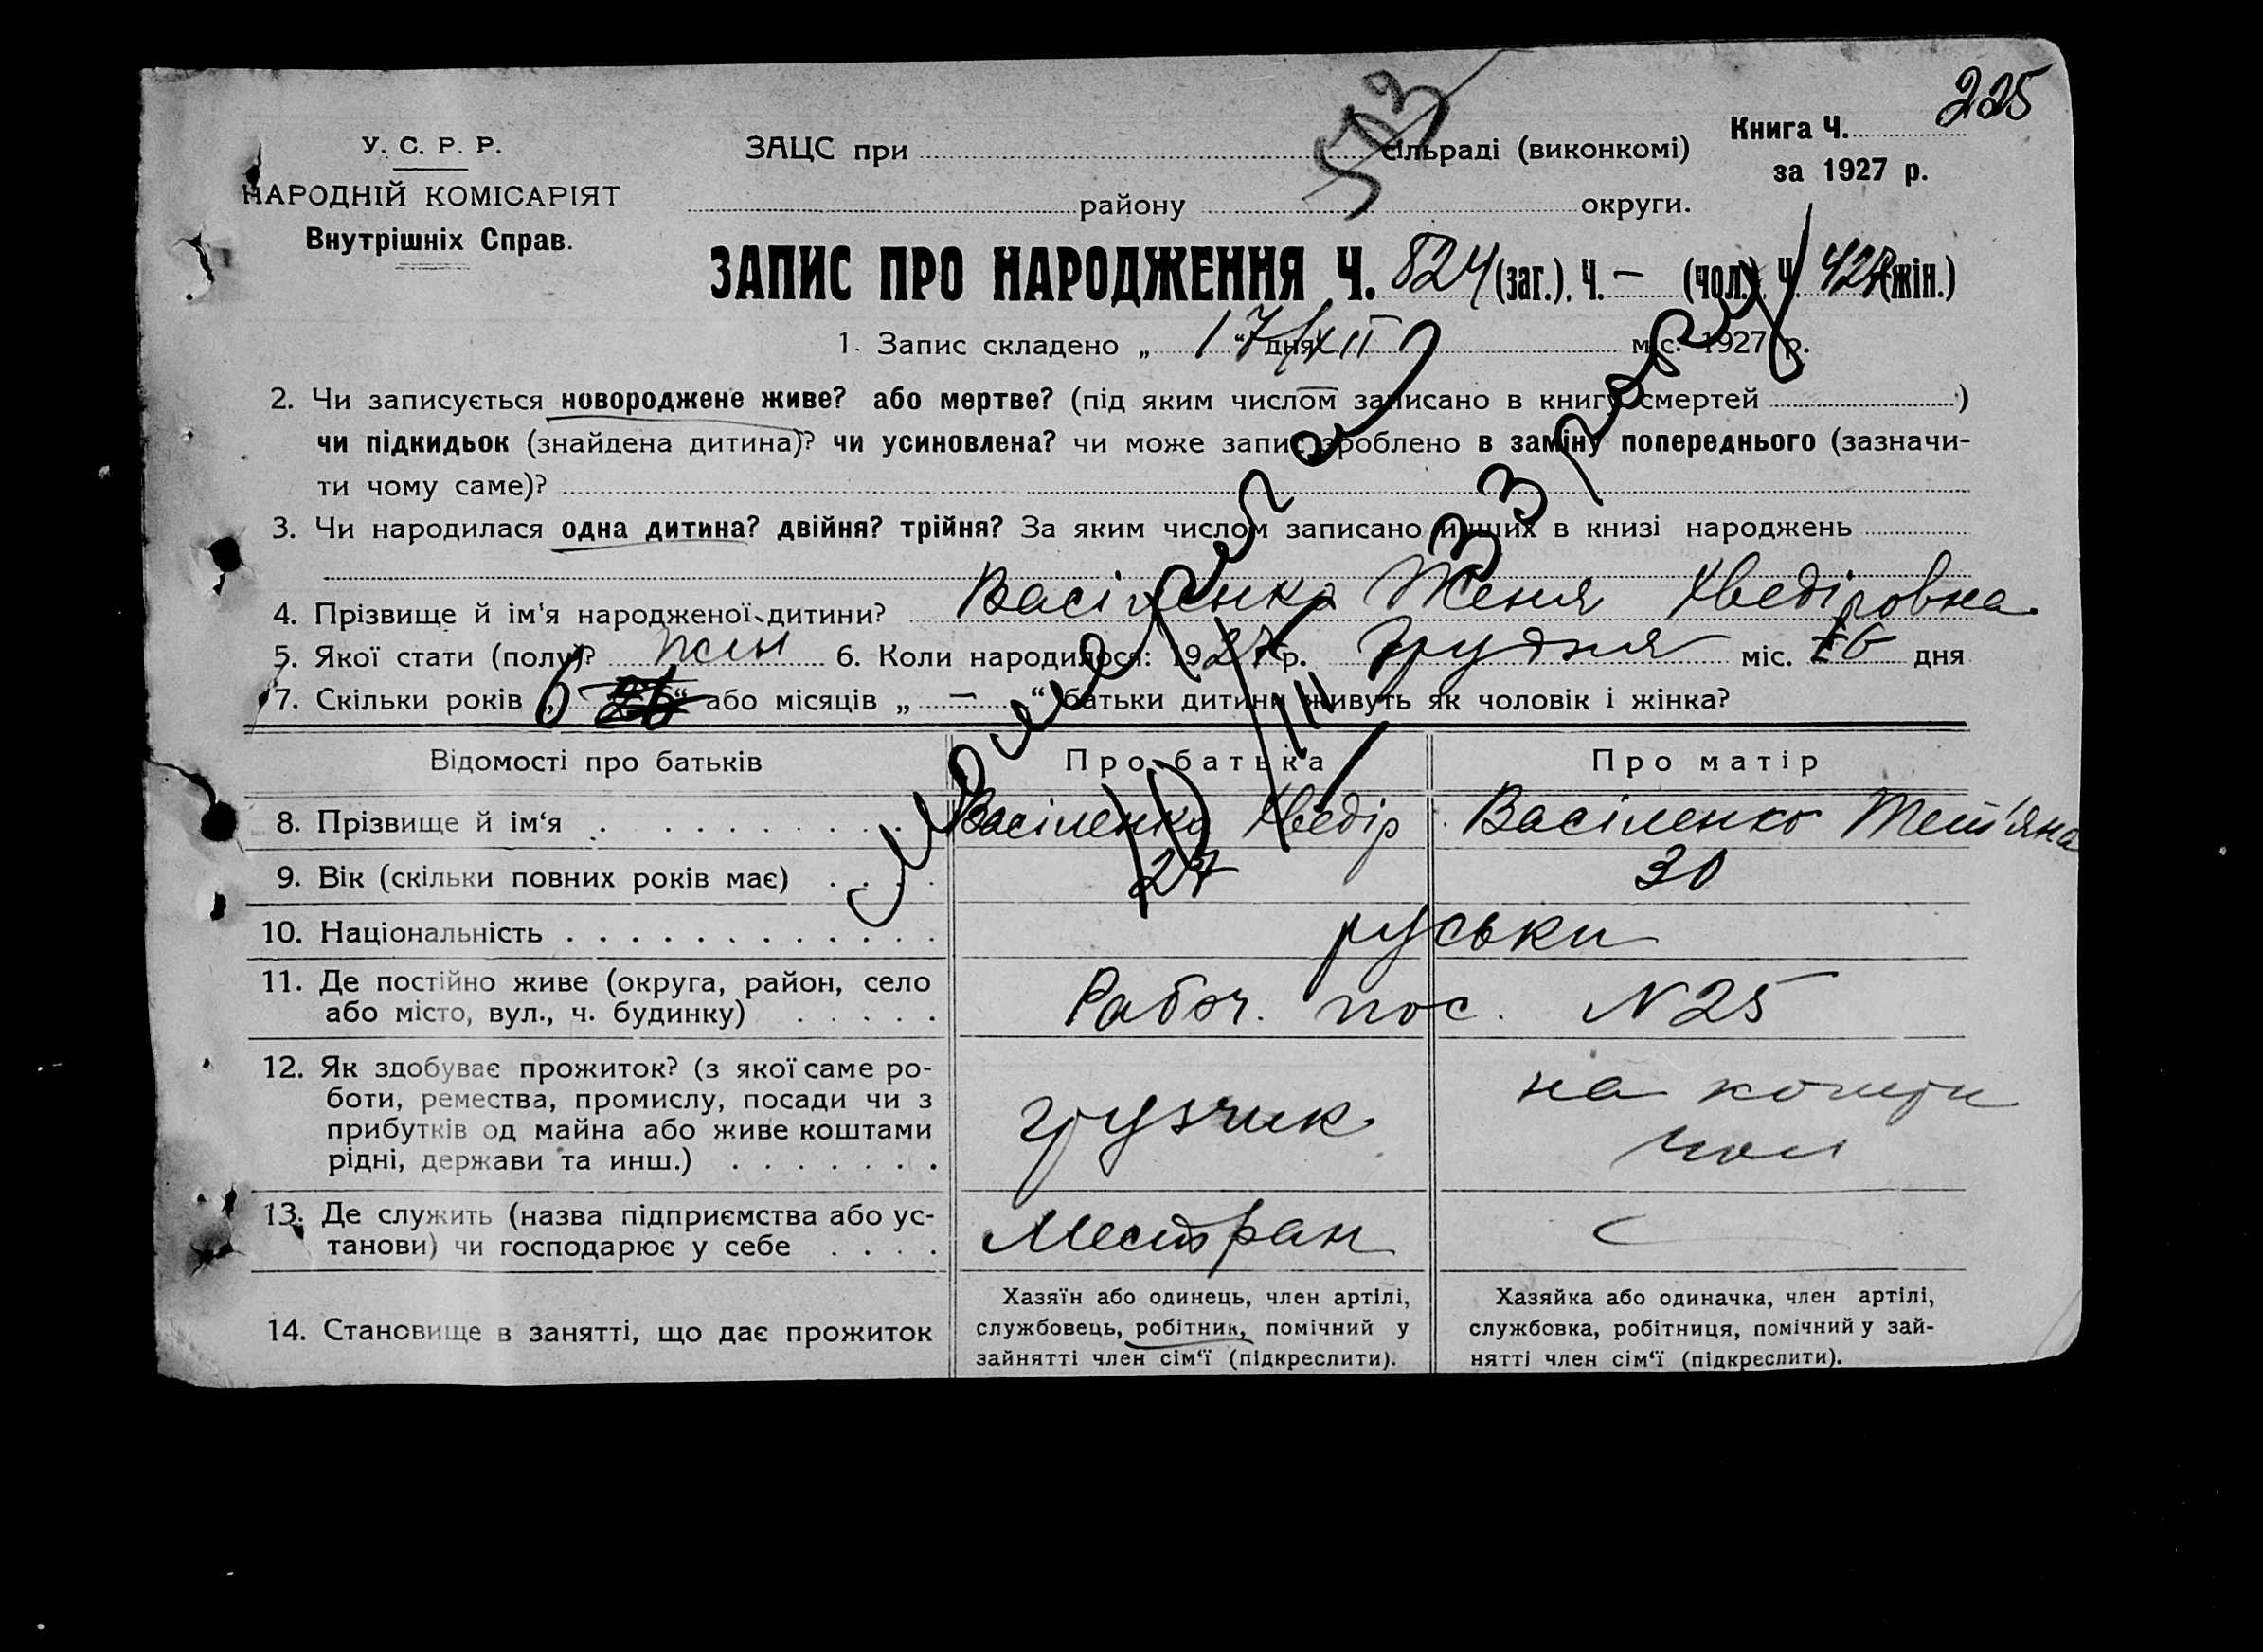 225
503
У. С. Р. Р.
НАРОДНІЙ КОМІСАРІЯТ
Внутрішніх Справ.
ЗАЦС при сільраді (виконкомі)
району округи.
Книга Ч.
за 1927 р.
ЗАПИС ПРО НАРОДЖЕННЯ Ч. 824 (заг.), Ч. — (чол.), Ч. (жін.)
1. Запис складено „ 17 “ дня XII міс. 1927 р.
2. Чи записується новороджене живе? або мертве? (під яким числом записано в книгу смертей )
чи підкидьок (знайдена дитина)? чи усиновлена? чи може запис зроблено в заміну попереднього (зазначи-
ти чому саме)?
3. Чи народилася одна дитина? двійня? трійня? За яким числом записано инших в книзі народжень
4. Прізвище й ім‘я народженої дитини? Васіленко Женя Хведіровна
5. Якої стати (полу)? жін 6. Коли народилося: 1927 р. Грудня міс. 16 дня
7. Скільки років „ 6 “ або місяців „ — “ батьки дитини живуть як чоловік і жінка?
Відомості про батьків Про батька Про матір
8. Прізвище й ім‘я Васіленко Хведір Васіленко Тет'яна
9. Вік (скільки повних років має) 27 30
10. Національність руськи
11. Де постійно живе (округа, район, село
або місто, вул., ч. будинку) Рабоч. пос. N 25
12. Як здобуває прожиток? (з якої саме ро-
боти, ремества, промислу, посади чи з
прибутків од майна або живе коштами
рідні, держави та инш.) грузчик на кошти чол
13. Де служить (назва підприємства або ус-
танови) чи господарює у себе Местран
14. Становище в занятті, що дає прожиток
Хазяїн або одинець, член артілі,
службовець, робітник, помічний у
зайнятті член сім‘ї (підкреслити).
Хазяйка або одиначка, член артілі,
службовка, робітниця, помічний у зай-
нятті член сім‘ї (підкреслити).